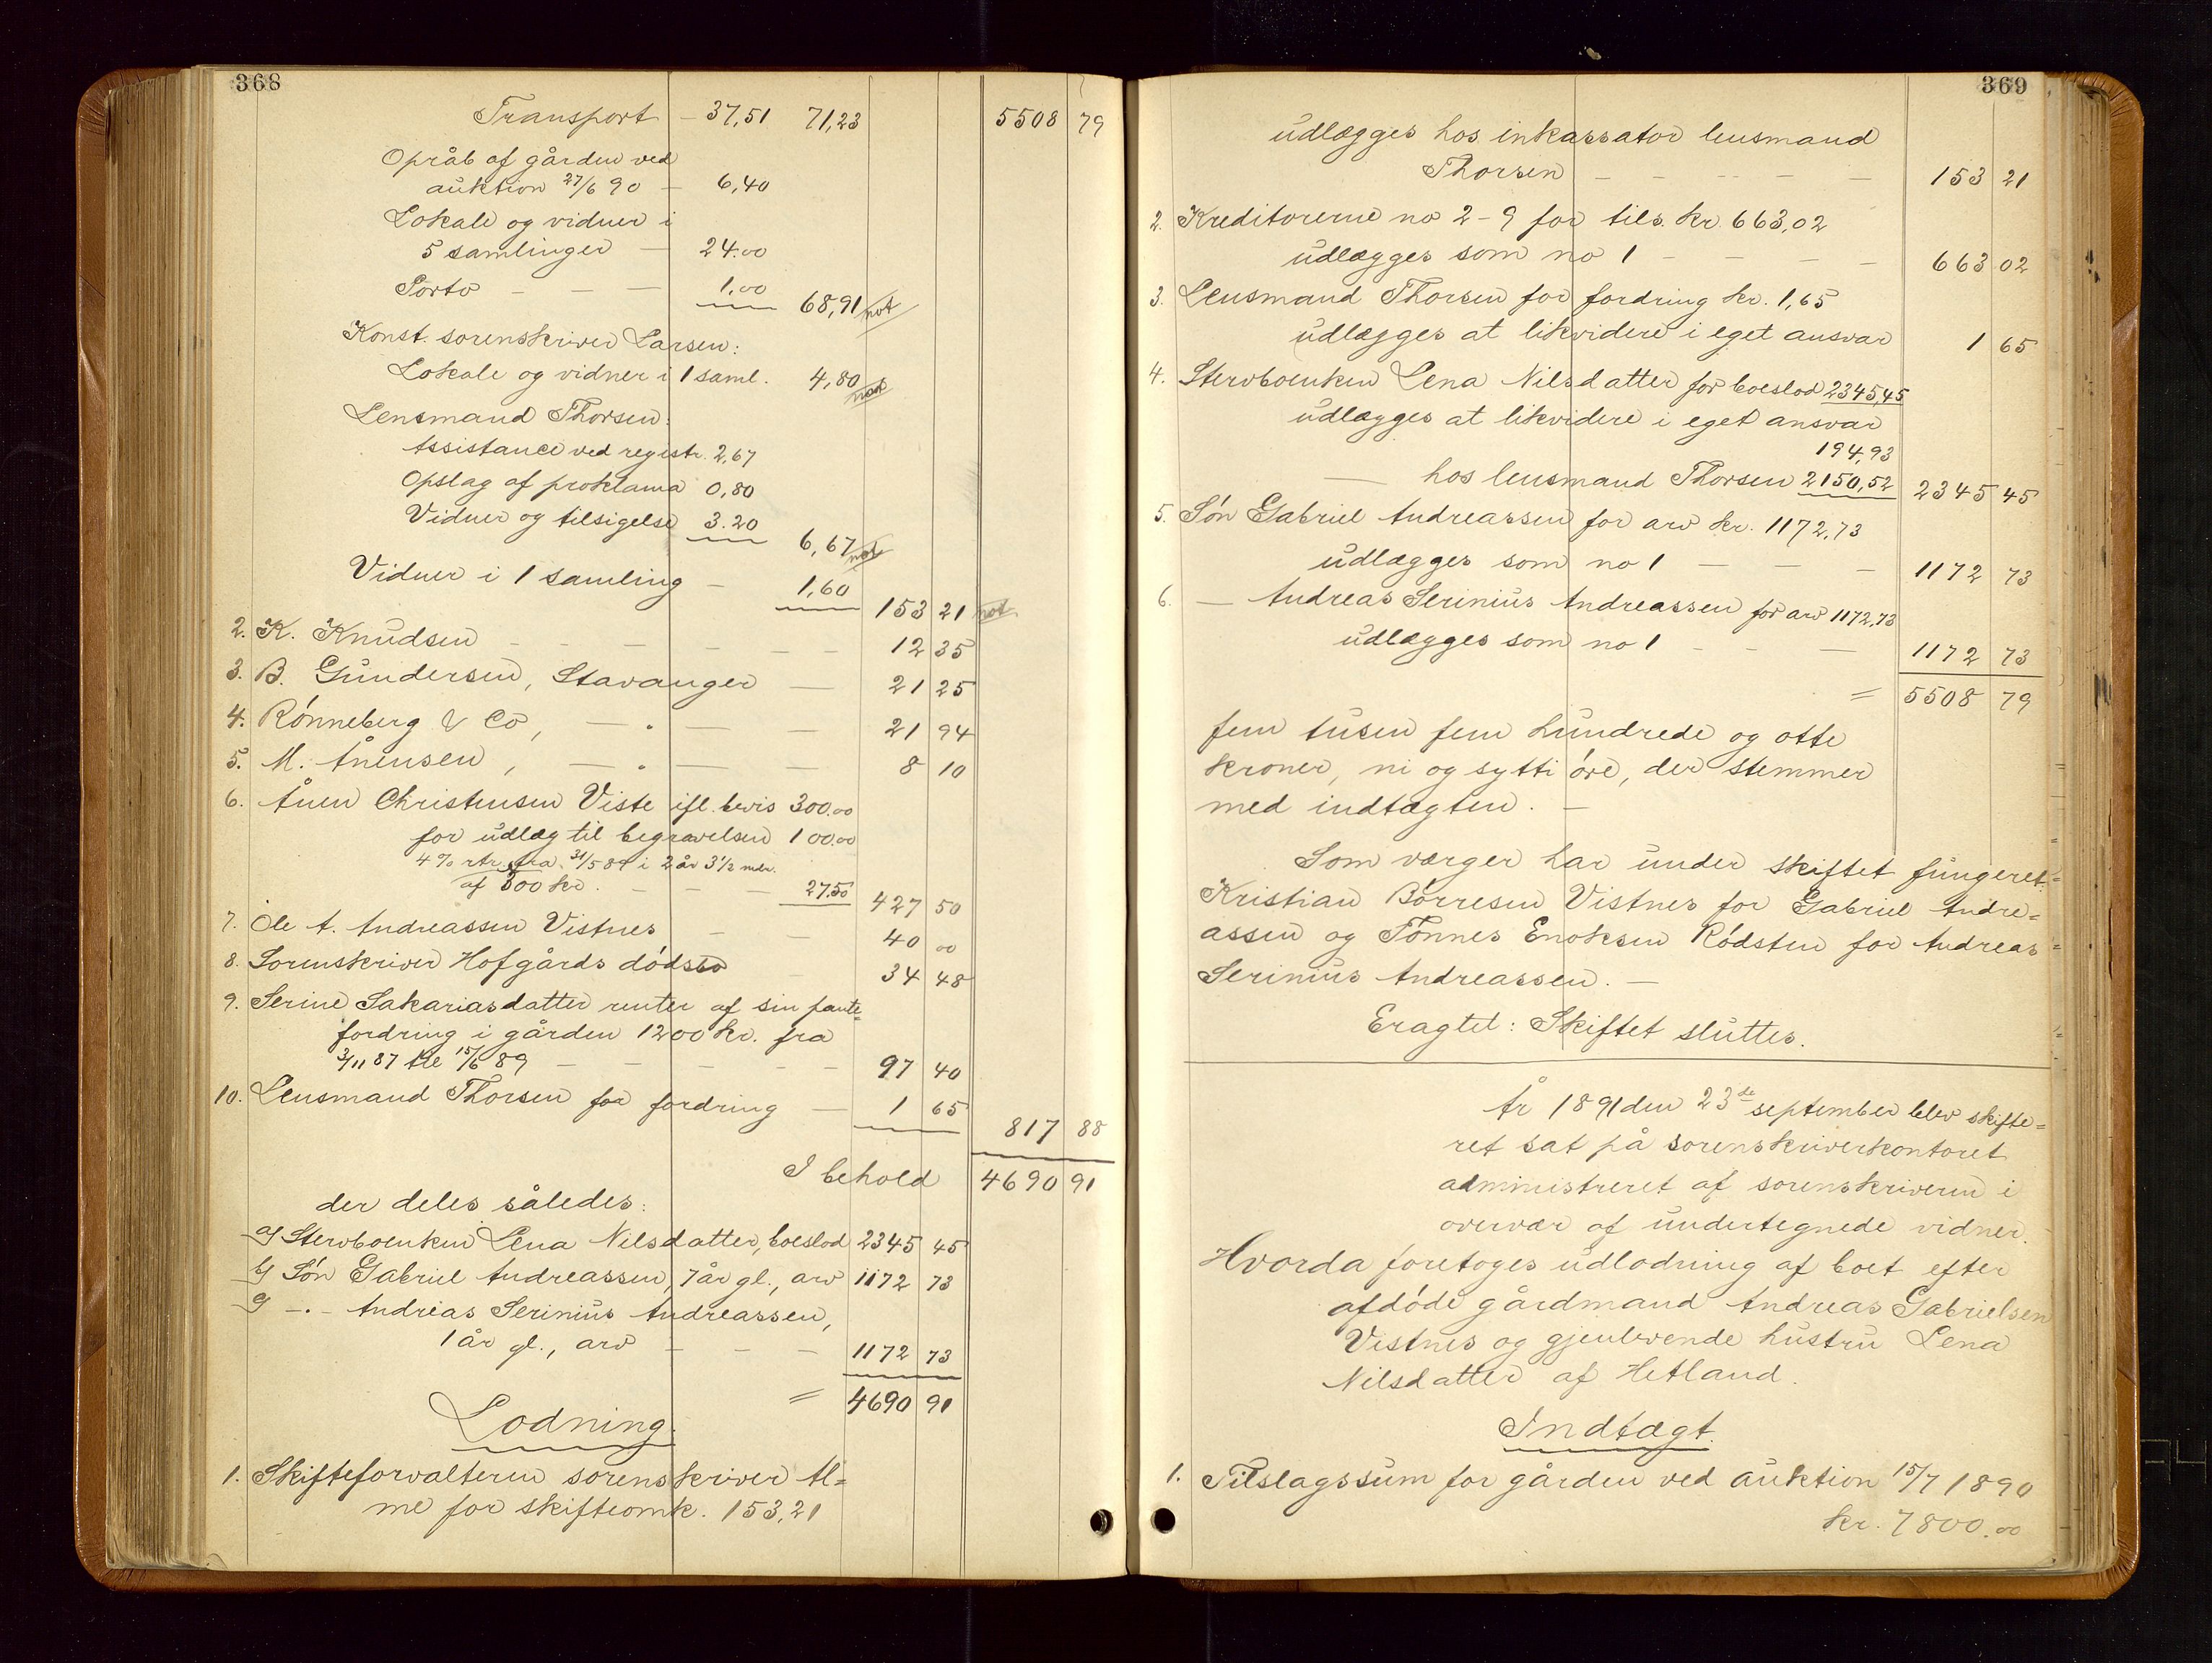 368
Transport – 37,51 71,23 5508 79
Opråb af gården ved
auktion 27/6 90 – 6,40
Lokale og vidner i
5 samlinger – 24.00
Porto – – – 1,00 68,91 not
Konst. sorenskriver Larsen:
Lokale og vidner i 1 saml. 4,80 not
Lensmand Thorsen:
Assistance ved registr. 2,67
Opslag af proklama 0,80
Vidner og tilsigelse 3.20 6,67 not
Vidner i 1 samling – 1,60 153 21 not
2. K. Knudsen – – – – – – 12 35
3. B. Gundersen, Stavanger – 21 25
4. Rønneberg & Co, – „ – – 21 94
5. M. Ånensen, – „ – – 8 10
6. Ånen Christensen Viste ifl. bevis 300.00
for udlæg til begravelsen 100.00
4% rtr. fra 31/5 89 i 2 år 3 1/2 mdr.
af 300 kr. – – – 27.50 427 50
7. Ole A. Andreassen Vistnes – – 40 00
8. Sorenskriver Hofgårds dødsbo – 34 48
9. Serine Sakariasdatter renter af sin pante=
fordring i gården 1200 kr. fra
3/11 87 til 15/6 89 – – – – – 97 40
10. Lensmand Thorsen for fordring – 1 65 817 88
I behold 4690 91
der deles således:
a) Stervboenken Lena Nilsdatter, boeslod 2345 45
b) Søn Gabriel Andreassen, 7 år gl., arv 1172 73
c) –„– Andreas Serinius Andreassen,
1 år gl., arv – – – 1172 73
= 4690 91
Lodning.
1. Skifteforvalteren sorenskriver Al=
me for skifteomk. 153,21
369
udlægges hos inkassator lensmand
Thorsen – – – – – 153 21
2. Kreditorerne no 2–9 for tils. kr. 663,02
udlægges som no 1 – – – – 663 02
3. Lensmand Thorsen for fordring kr. 1,65
udlægges at likvidere i eget ansvar 1 65
4. Stervboenken Lena Nilsdatter for boeslod 2345,45
udlægges at likvidere i eget ansvar
194,93
– hos lensmand Thorsen 2150,52 2345 45
5. Søn Gabriel Andreassen for arv kr. 1172,73
udlægges som no 1 – – – 1172 73
6. – Andreas Serinius Andreassen for arv 1172,73
udlægges som no 1 – – – 1172 73
= 5508 79
fem tusen fem hundrede og otte
kroner, ni og sytti øre, der stemmer
med indtægten. –
Som værger har under skiftet fungeret:
Kristian Børresen Vistnes for Gabriel Andre=
assen og Tønnes Enoksen Rødsten for Andreas
Serinius Andreassen. –
Eragtet: Skiftet sluttes.
År 1891 den 23de september blev skifte=
ret sat på sorenskriverkontoret
administreret af sorenskriveren i
overvær af undertegnede vidner.
Hvorda foretoges udlodning af boet efter
afdøde gårdmand Andreas Gabrielsen
Vistnes og gjenlevende hustru Lena
Nilsdatter af Hetland.
Indtægt.
1. Tilslagssum for gården ved auktion 15/7 1890
kr. 7800.00